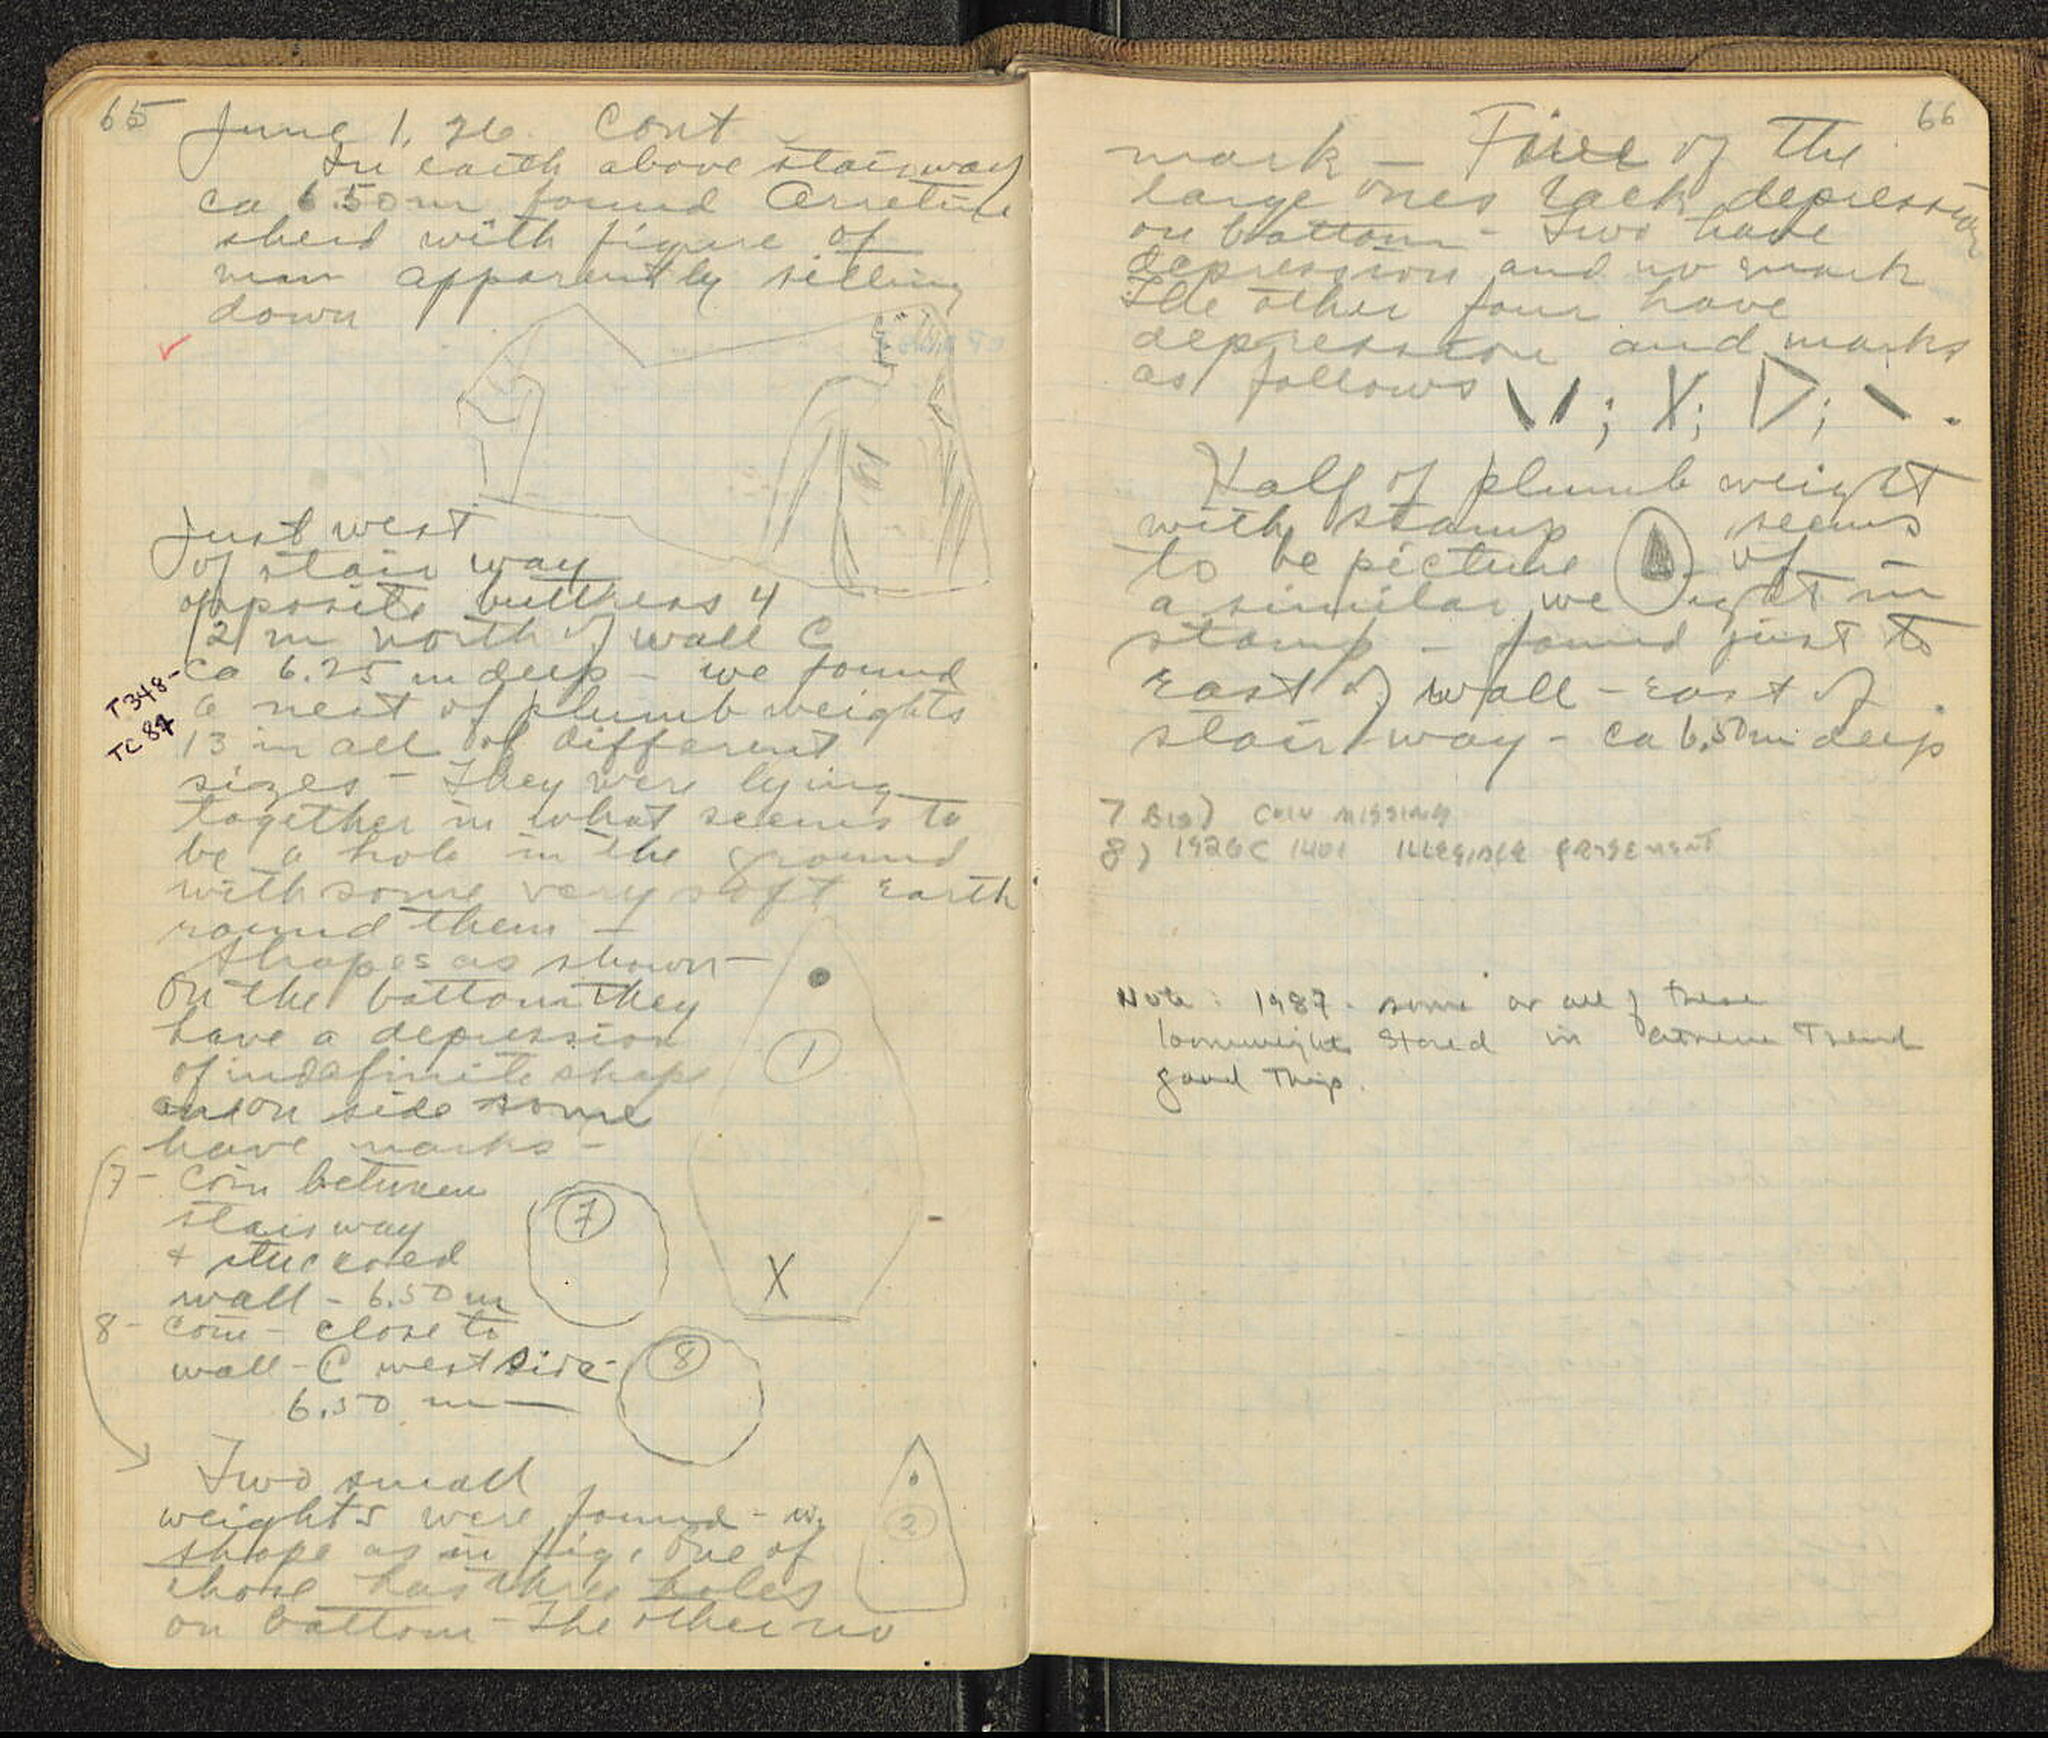 65
June 1, 26. Cont
In earth above stairway
ca 6.50 m found Arretine
sherd with figure of
man apparently sitting
down
Just west
of stair way
opposite buttress 4
2 m north of wall C
ca 6.25 m deep - we found
T348-
TC 87
a nest of plumb weights
13 in all of different
sizes - They were lying
together in what seems to
be a hole in the ground
with some very soft earth
round them -
Shapes as shown -
On the bottom they
have a depression
of indefinite shape
and on side some
have marks -
1
X
7 - Coin between
stairway
+ stuccoed
wall - 6.50 m
7
8 - Coin - close to
wall - C west side -
6.50 m -
8
Two small
weights were found -
shape as in fig. One of
those has three holes
on bottom - The other no
2
66
mark - Five of the
large ones lack depression
on bottom - Two have
depression and no mark
The other four have
depression and marks
as follows \ / ; X ; ▷ ; \ .
Half of plumb weight
with stamp seems
to be picture of
a similar weight in
stamp - found just to
East of wall - East of
stair way - ca 6.50 m deep
7 Bis) COIN MISSING
8) 1926C 1401 ILLEGIBLE
Note: 1987 - some or all of these
loomweights stored in Trend
good Things.